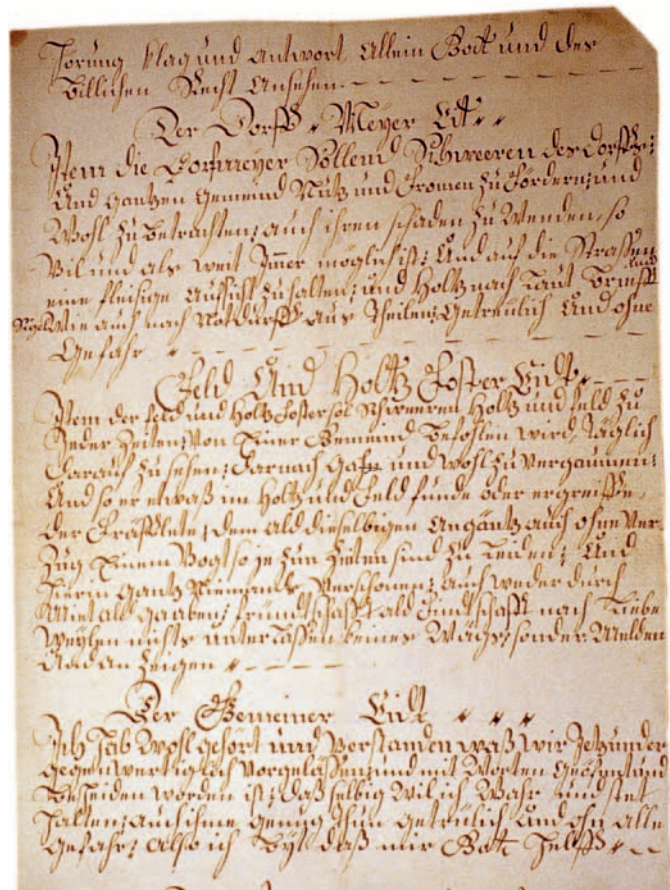 hörung klag und Antwort, Allein Gott und des
billichen Recht Ansehen.
Der Dorff Meyer Eit
Item die Dorfmeyer Söllend Schweeren des dorffs:
Und gantzen Gemeind Nutz und fromen zu fordern; und
Wohl zu betrachten; auch ihren schaden zu wenden, so
Vil und als weit Immer möglich ist; Und auf die Strassen
eine fleisige Aufsicht zu halten; und Holtz nach Laut brieff
wie auch nach Notdurfft aus Theilen; Getreulich Und ohne
Gefahr
Feld Und Holtz Forster Eidt
Item der feld und Holtz forster sol Schweeren Holtz und feld zu
Jeder Zeiten; Von Einer Gemeind befohlen wird, Täglich
darauf zu sehen; darnach und wohl zu vergaumen;
Und so er etwaß im Holtz und Feld funde oder ergreiffe,
der dem ald dieselbigen Angäntz auch ohne Ver-
zug Einem Vogt so je zun Zeiten sind zu Leiden; Und
hierin gantz Niemands Verschonen; auch weder durch
Miet ald gaaben; fründtschafft ald findtschafft nach Liebe
wegen nichts unter Lassen keines Wägs; sonder Melden
Und an Zeigen
Der Gemeiner Eidt
Ich hab Wohl gehört und Verstanden waß wir Jetzunder
gegenwertiglich Vorgeläsen; und mit Worten Geöfnet und
bescheiden worden ist; daß selbig Wil ich Wahr und stet
halten; auch ihme genug thun getrülich Und ohn alle
gefahr; also ich bit daß mir Gott helff